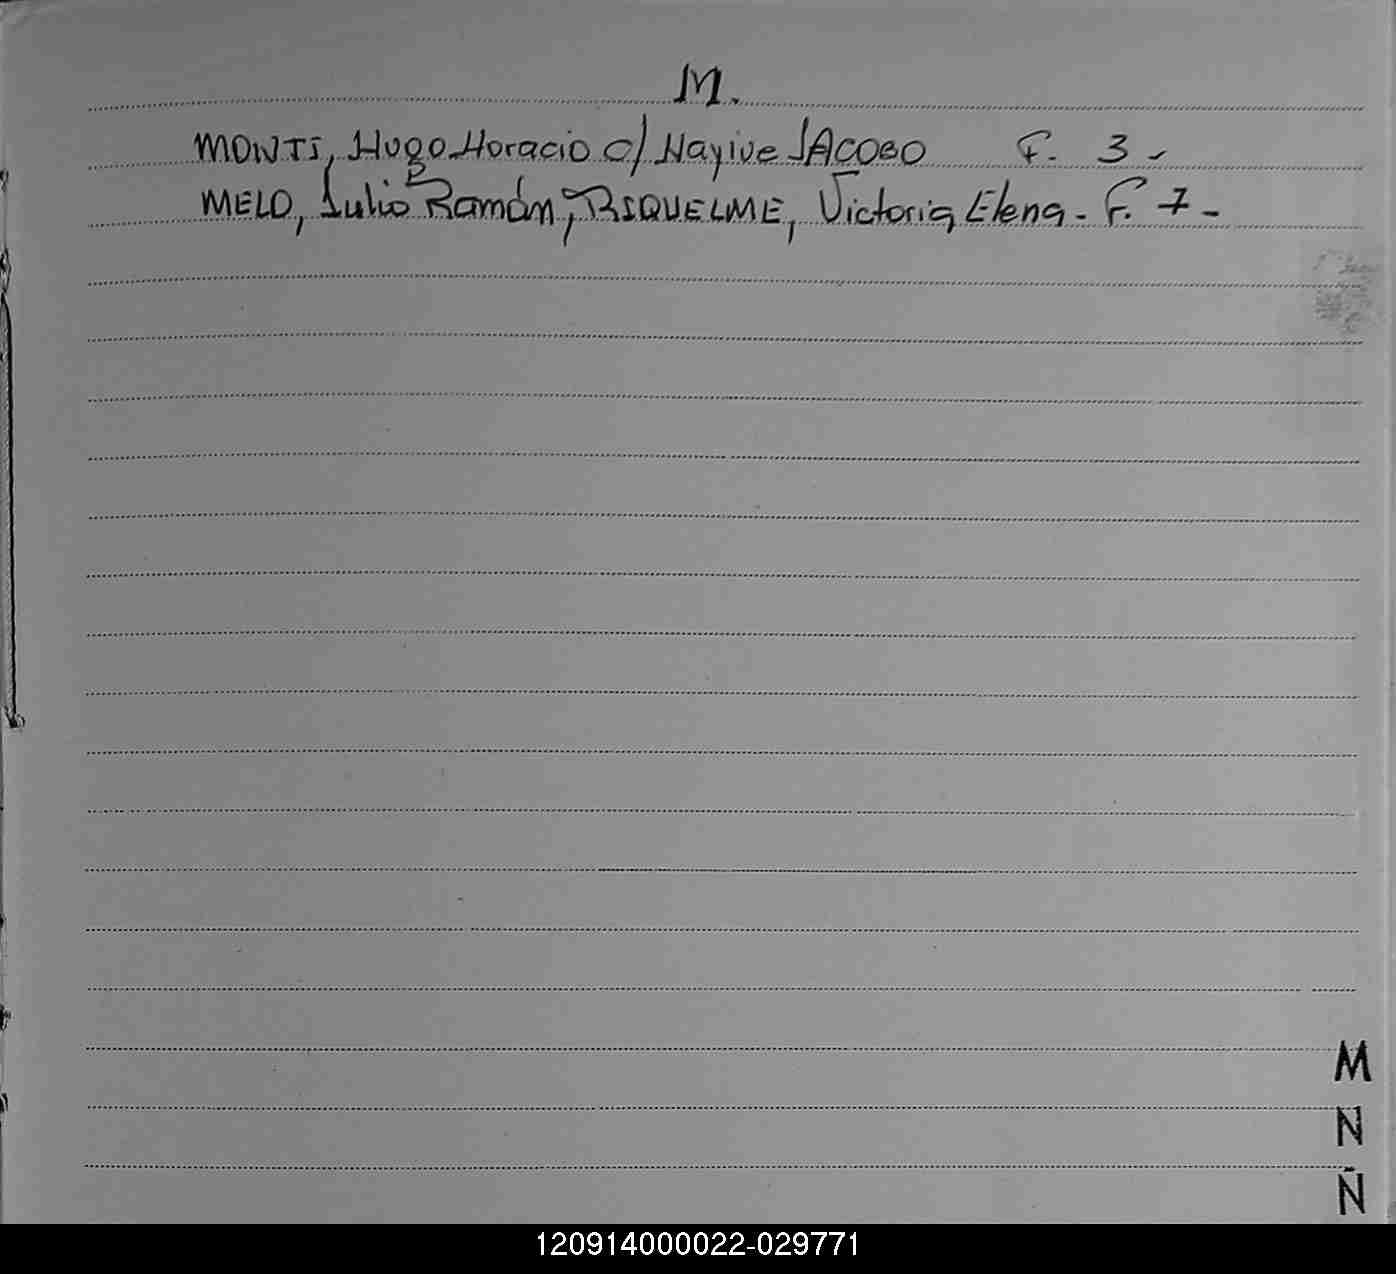 M.
MONTI, Hugo Horacio c/ Nayive JACOBO F. 3 -
MELO, Julio Ramón, RIQUELME, Victoria Elena - F. 7 -
M
N
Ñ
120914000022-029771